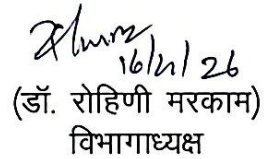 16/01/26
(डॉ. रोहिणी मरकाम)
विभागाध्यक्ष